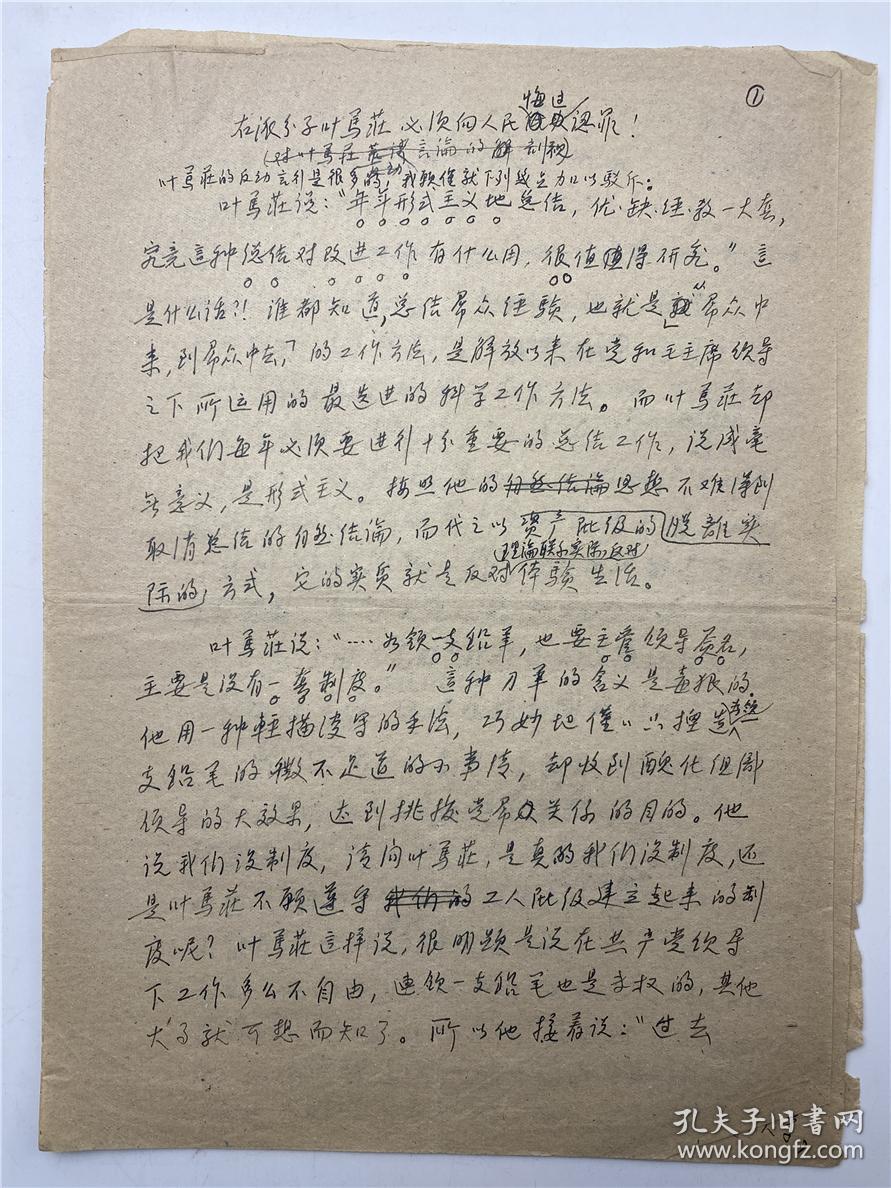 ①
右派分子叶驀莊必须向人民悔过認罪！
(对叶驀莊荒谬言論的解剖視)
叶驀莊的反动言行是很多的，我願僅就下列幾点加以駁斥。
叶驀莊说：“年年形式主义地总结，优.缺.经.教一大套，
究竟這种总结对改进工作有什么用，很值得研究。”這
是什么话?! 谁都知道，总结羣众经験，也就是“羣众中
来，到羣众中去”的工作方法，是解放以来在党和毛主席领导
之下所运用的最先进的科学工作方法。而叶驀莊却
把我们每年必须要进行十分重要的总结工作，说成毫
无意义，是形式主义。按照他的自然结論思想不难得到
取消总结的自然结論，而代之以资产阶级的脱離实
际的方式，它的实质就是反对理論联系实际，反对体験生活。
叶驀莊说：“……如领一支铅笔，也要主管领导签名，
主要是没有一套制度。” 這种刀筆的含义是毒狠的。
他用一种輕描淡写的手法，巧妙地僅以只捏造
支铅笔的微不足道的小事情，却收到醜化组周
领导的大效果，达到挑拨党羣关係的目的。他
说我们没制度，请问叶驀莊，是真的我们没制度，还
是叶驀莊不願遵守我们的工人阶级建立起来的制
度呢？叶驀莊這样说，很明顕是说在共产党领导
下工作多么不自由，連领一支铅笔也是无权的，其他
大事就可想而知了。所以他接着说：“过去
孔夫子旧书网
www.kongfz.com